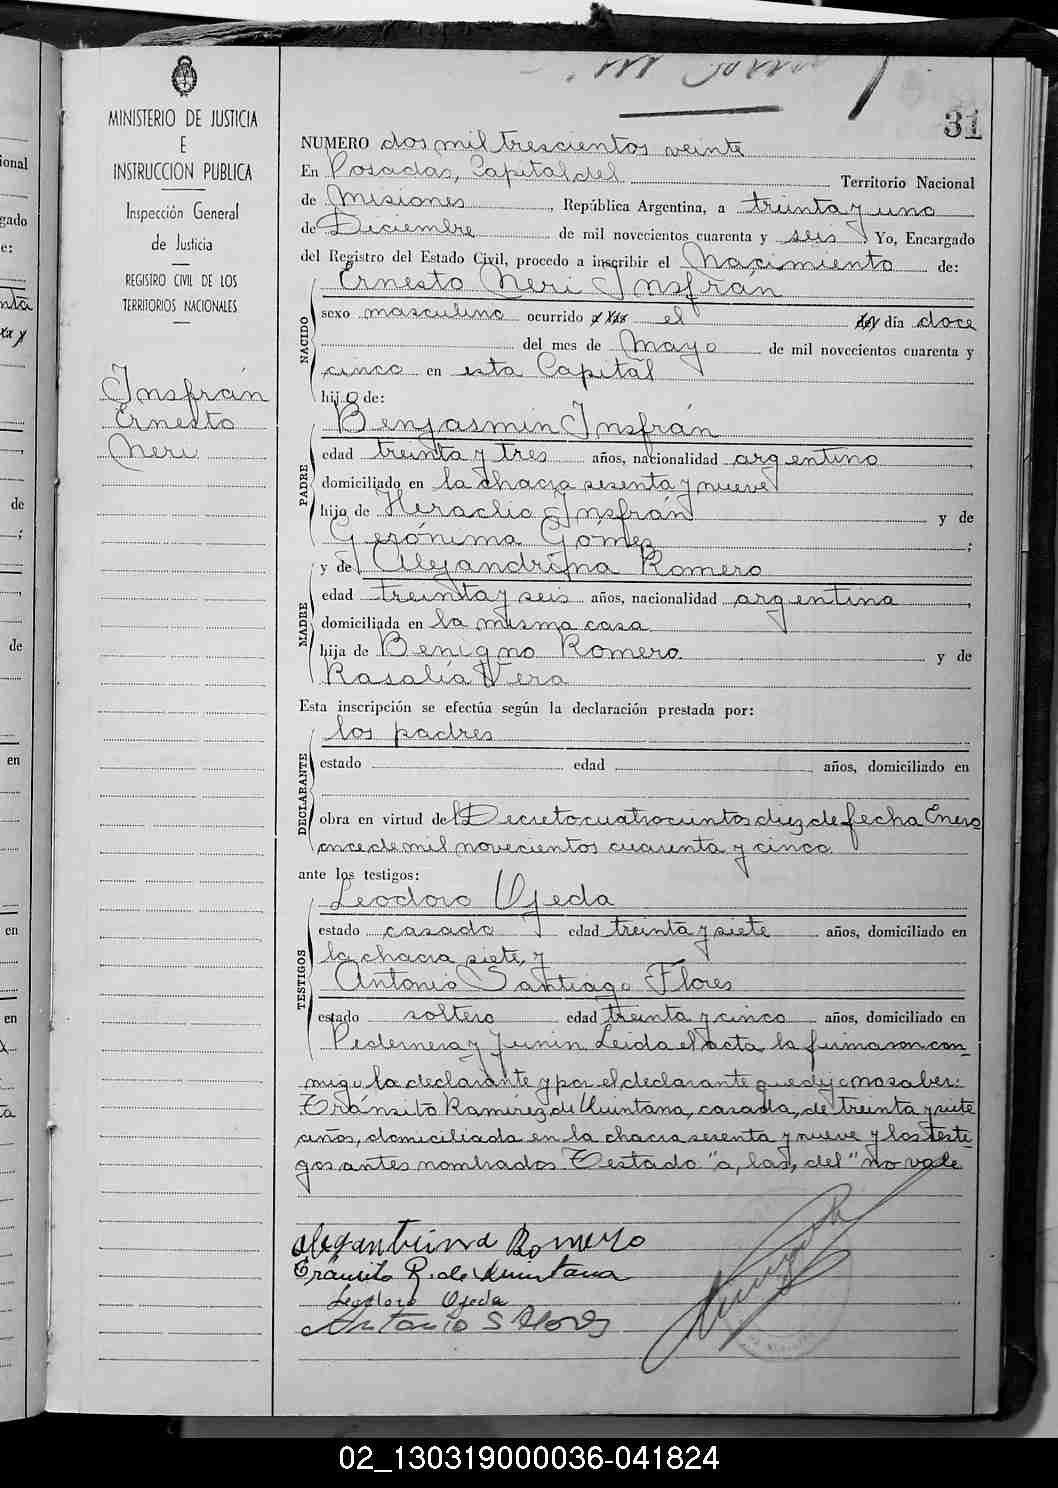 31
MINISTERIO DE JUSTICIA
E
INSTRUCCION PUBLICA
Inspección General
de Justicia
REGISTRO CIVIL DE LOS
TERRITORIOS NACIONALES
Insfrán
Ernesto
Neri
NUMERO dos mil trescientos veinte
En Posadas, Capital del Territorio Nacional
de Misiones, República Argentina, a treinta y uno
de Diciembre de mil novecientos cuarenta y seis Yo, Encargado
del Registro del Estado Civil, procedo a inscribir el Nacimiento de:
NACIDO
Ernesto Neri Insfrán
sexo masculino ocurrido a las el del día doce
del mes de Mayo de mil novecientos cuarenta y
cinco en esta Capital
hijo de:
PADRE
Benjasmin Insfrán
edad treinta y tres años, nacionalidad argentino
domiciliado en la chacra sesenta y nueve
hijo de Heraclio Insfrán y de
Gerónima Gómez;
MADRE
y de Alejandrina Romero
edad treinta y seis años, nacionalidad argentina
domiciliada en la misma casa
hija de Benigno Romero. y de
Rasalía Vera
Esta inscripción se efectúa según la declaración prestada por:
DECLARANTE
los padres
estado edad años, domiciliado en
obra en virtud del Decreto cuatrocientos diez de fecha Enero
once de mil novecientos cuarenta y cinco.
ante los testigos:
TESTIGOS
Leodoro Ojeda
estado casado edad treinta y siete años, domiciliado en
la chacra siete, y
Antonio Santiago Flores
estado soltero edad treinta y cinco años, domiciliado en
Pedernera y Junin Leida el acta la firmaron con-
migo la declarante y por el declarante que dijo no saber:
Tránsito Ramírez de Quintana, casada, de treinta y siete
años, domiciliada en la chacra sesenta y nueve y los testi-
gos antes nombrados. Testado "a, las, del" no vale
Alejantrina Romero
Tránsito R. de Quintana
Leodoro Ojeda
Antonio S Flores
ional
gado
e:
de
de
en
en
en
02_130319000036-041824